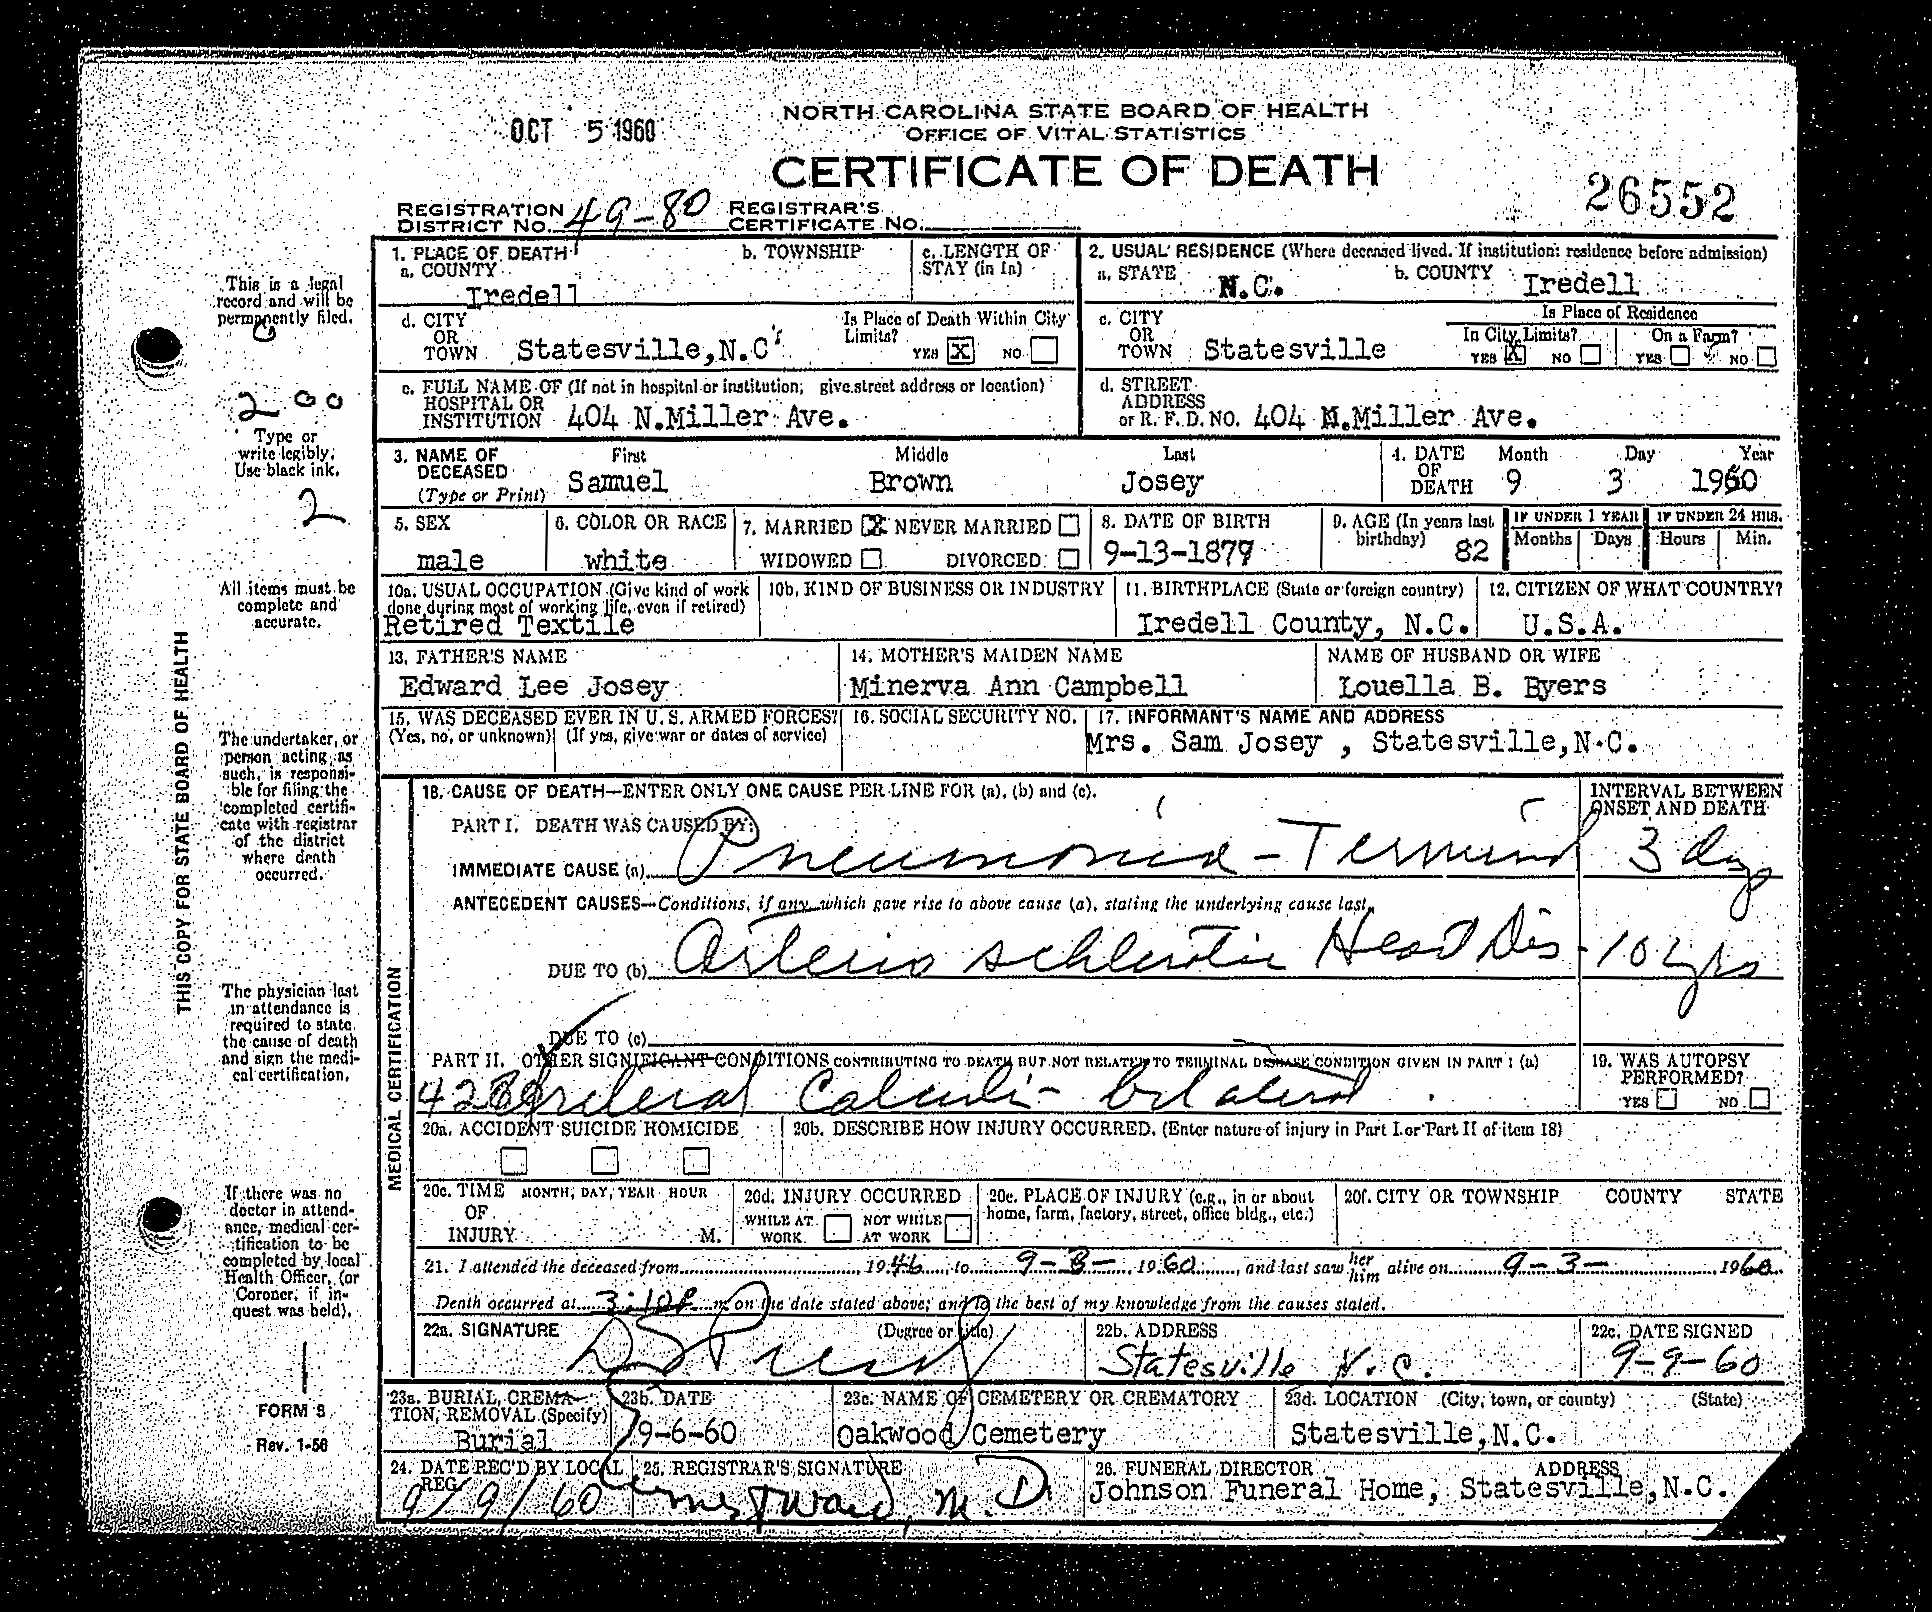 NORTH CAROLINA STATE BOARD OF HEALTH
OCT 5 1960
OFFICE OF VITAL STATISTICS
CERTIFICATE OF DEATH
26552
REGISTRATION DISTRICT NO. 49-80 REGISTRAR'S CERTIFICATE NO.
This is a legal record and will be permanently filed.
1. PLACE OF DEATH
a. COUNTY Iredell
b. TOWNSHIP
c. LENGTH OF STAY (in 1a)
2. USUAL RESIDENCE (Where deceased lived. If institution: residence before admission)
a. STATE N.C.
b. COUNTY Iredell
d. CITY OR TOWN Statesville,N.C.
Is Place of Death Within City Limits? YES X NO
c. CITY OR TOWN Statesville
Is Place of Residence
In City Limits? YES X NO
On a Farm? YES NO
e. FULL NAME OF (If not in hospital or institution; give street address or location) HOSPITAL OR INSTITUTION 404 N.Miller Ave.
d. STREET ADDRESS or R. F. D. NO. 404 N.Miller Ave.
2 00
Type or write legibly. Use black ink.
2
3. NAME OF DECEASED (Type or Print)
First Samuel
Middle Brown
Last Josey
4. DATE OF DEATH
Month 9 Day 3 Year 1960
5. SEX male
6. COLOR OR RACE white
7. MARRIED X NEVER MARRIED
WIDOWED DIVORCED
8. DATE OF BIRTH 9-13-1879
9. AGE (In years last birthday) 82
IF UNDER 1 YEAR Months Days
IF UNDER 24 HRS. Hours Min.
All items must be complete and accurate.
10a. USUAL OCCUPATION (Give kind of work done during most of working life, even if retired)
Retired Textile
10b. KIND OF BUSINESS OR INDUSTRY
11. BIRTHPLACE (State or foreign country)
Iredell County, N.C.
12. CITIZEN OF WHAT COUNTRY?
U.S.A.
13. FATHER'S NAME
Edward Lee Josey
14. MOTHER'S MAIDEN NAME
Minerva Ann Campbell
NAME OF HUSBAND OR WIFE
Louella B. Byers
15. WAS DECEASED EVER IN U. S. ARMED FORCES?
(Yes, no, or unknown) (If yes, give war or dates of service)
16. SOCIAL SECURITY NO.
17. INFORMANT'S NAME AND ADDRESS
Mrs. Sam Josey , Statesville,N.C.
THIS COPY FOR STATE BOARD OF HEALTH
The undertaker, or person acting as such, is responsible for filing the completed certificate with registrar of the district where death occurred.
MEDICAL CERTIFICATION
18. CAUSE OF DEATH—ENTER ONLY ONE CAUSE PER LINE FOR (a), (b) and (c).
INTERVAL BETWEEN ONSET AND DEATH
PART I. DEATH WAS CAUSED BY:
IMMEDIATE CAUSE (a) Pneumonia - Terminal 3 days
ANTECEDENT CAUSES—Conditions, if any, which gave rise to above cause (a), stating the underlying cause last.
DUE TO (b) Arterio schlerotic Heart Dis - 10 yrs
DUE TO (c)
The physician last in attendance is required to state the cause of death and sign the medical certification.
PART II. OTHER SIGNIFICANT CONDITIONS CONTRIBUTING TO DEATH BUT NOT RELATED TO TERMINAL DISEASE CONDITION GIVEN IN PART I (a)
Calculi - bilateral
19. WAS AUTOPSY PERFORMED?
YES NO
20a. ACCIDENT SUICIDE HOMICIDE
20b. DESCRIBE HOW INJURY OCCURRED. (Enter nature of injury in Part I or Part II of item 18)
If there was no doctor in attendance, medical certification to be completed by local Health Officer, (or Coroner, if inquest was held).
20c. TIME OF INJURY MONTH, DAY, YEAR HOUR M.
20d. INJURY OCCURRED
WHILE AT WORK NOT WHILE AT WORK
20e. PLACE OF INJURY (e.g., in or about home, farm, factory, street, office bldg., etc.)
20f. CITY OR TOWNSHIP COUNTY STATE
21. I attended the deceased from 1946, to 9-3-, 1960, and last saw her him alive on 9-3- 1960.
Death occurred at 3:10P m. on the date stated above; and to the best of my knowledge from the causes stated.
22a. SIGNATURE (Degree or title)
22b. ADDRESS
Statesville N.C.
22c. DATE SIGNED
9-9-60
FORM 8
Rev. 1-56
23a. BURIAL, CREMATION, REMOVAL (Specify)
Burial
23b. DATE
9-6-60
23c. NAME OF CEMETERY OR CREMATORY
Oakwood Cemetery
23d. LOCATION (City, town, or county) (State)
Statesville,N.C.
24. DATE REC'D BY LOCAL REG.
9/9/60
25. REGISTRAR'S SIGNATURE
Ernest Ward, M.D.
26. FUNERAL DIRECTOR ADDRESS
Johnson Funeral Home, Statesville,N.C.